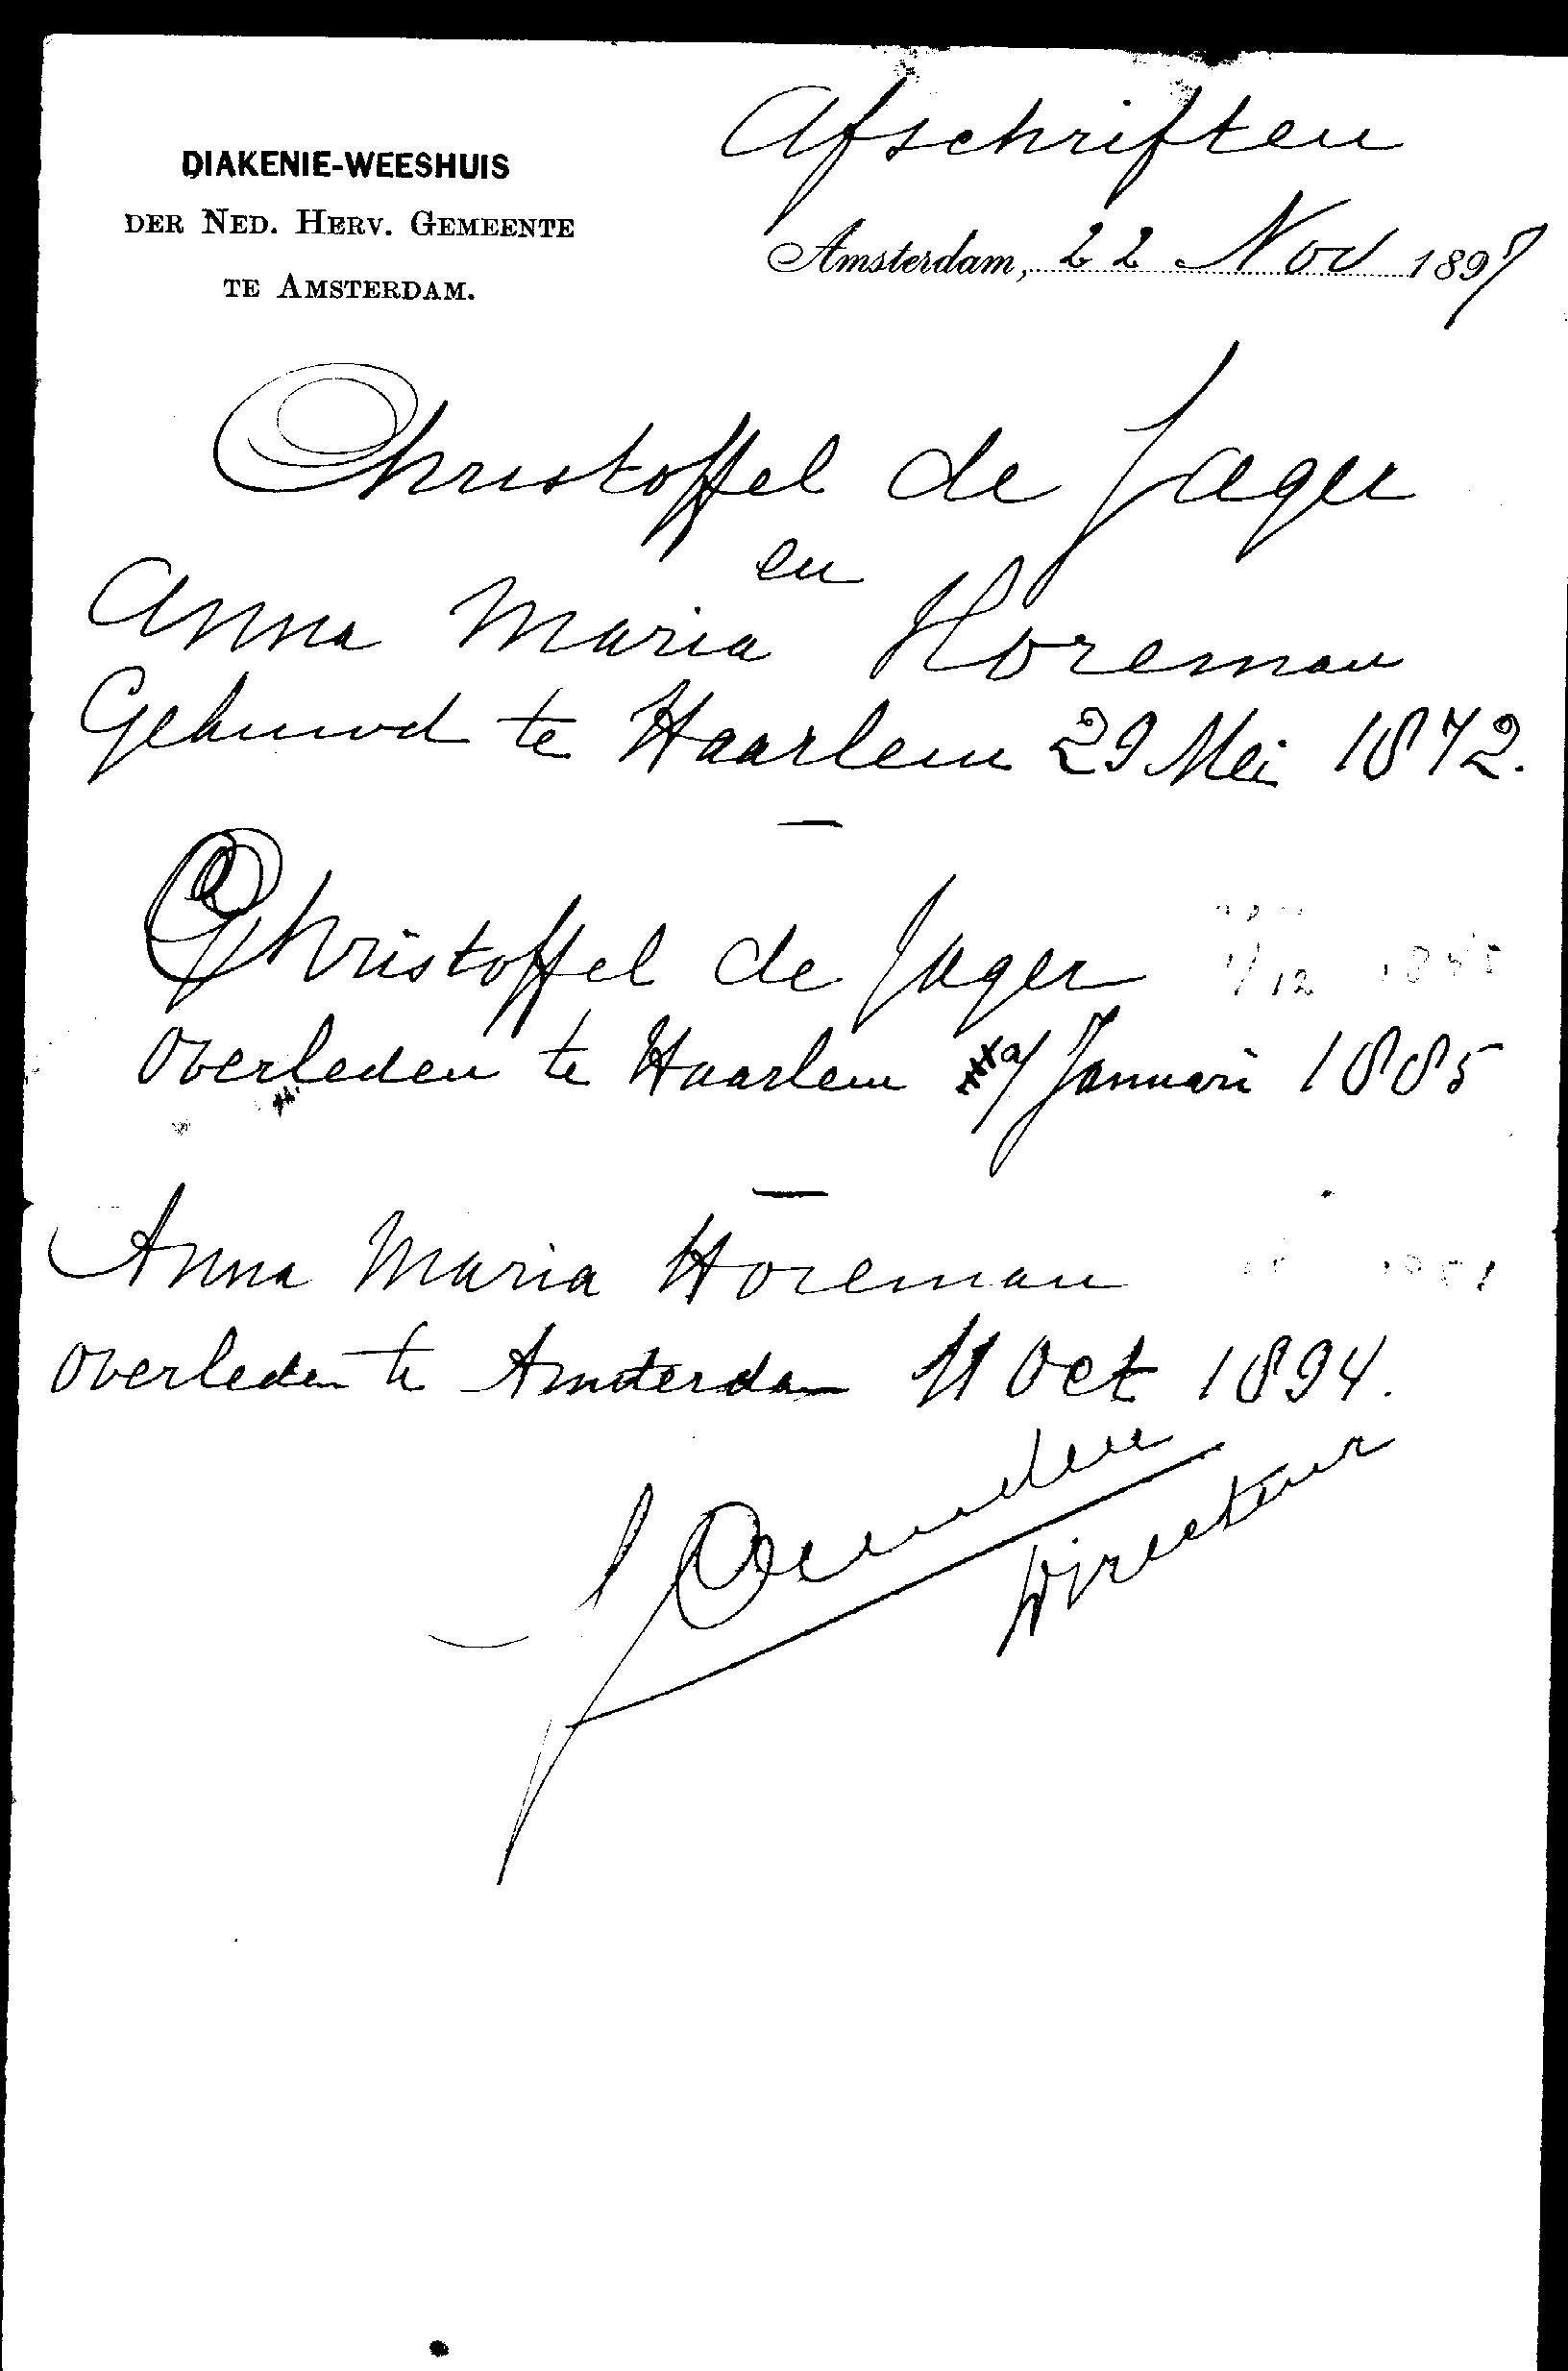 Afschriften
DIAKENIE-WEESHUIS
DER NED. HERV. GEMEENTE
TE AMSTERDAM.
Amsterdam, 22 Nov 1897
Christoffel de Jager
en
Anna Maria Horeman
Gehuwd te Haarlem 29 Mei 1872.
Christoffel de Jager
overleden te Haarlem Januari 1885
Anna Maria Horeman
overleden te Amsterdam 11 Oct 1894.
Directeur